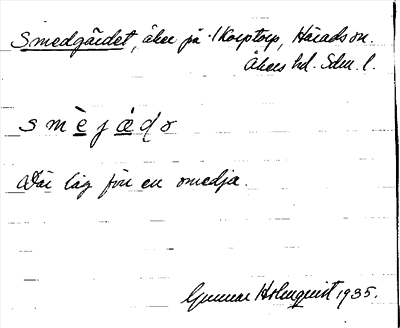 Smedgärdet, åker på Korptorp, Härads sn.
Åkers hd. Sdm. l.
Där låg förr en smedja.
Gunnar Holmquist 1935.